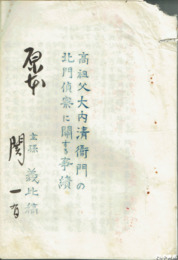 高祖父大内清衛門の
北門偵察に関する事蹟
玄孫 義比稿
原本
関 一